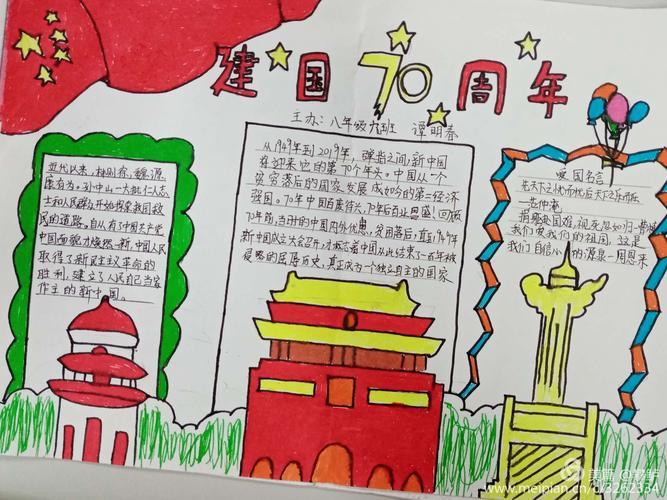 建国70周年
主办：八年级六班 谭明春
近代以来，林则徐、魏源、
康有为。孙中山一大批仁人志
士和人民群众开始探索我国救
民的道路。自从有了中国共产党
中国面貌焕然一新，中国人民
取得了新民主主义革命的
胜利，建立了人民自己当家
作主的新中国。
从1949年到2019年，弹指之间，新中国
在迎来它的第70个年头。中国从一个
贫穷落后的国家，发展成如今的第二经济
强国。70年中国百废待兴，70年后百业昌盛！回顾
70年前，当时的中国内外忧患，贫困落后，直至1949年
新中国成立大会召开，才标志着中国从此结束了一百年被
侵略的屈辱历史，真正成为一个独立自主的国家
爱国名言
先天下之忧而忧后天下之乐而乐
—范仲淹
捐躯赴国难，视死忽如归—曹植
我们爱我们的祖国，这是
我们自信心的源泉—周恩来
美篇
www.meipian.cn/c/3262334